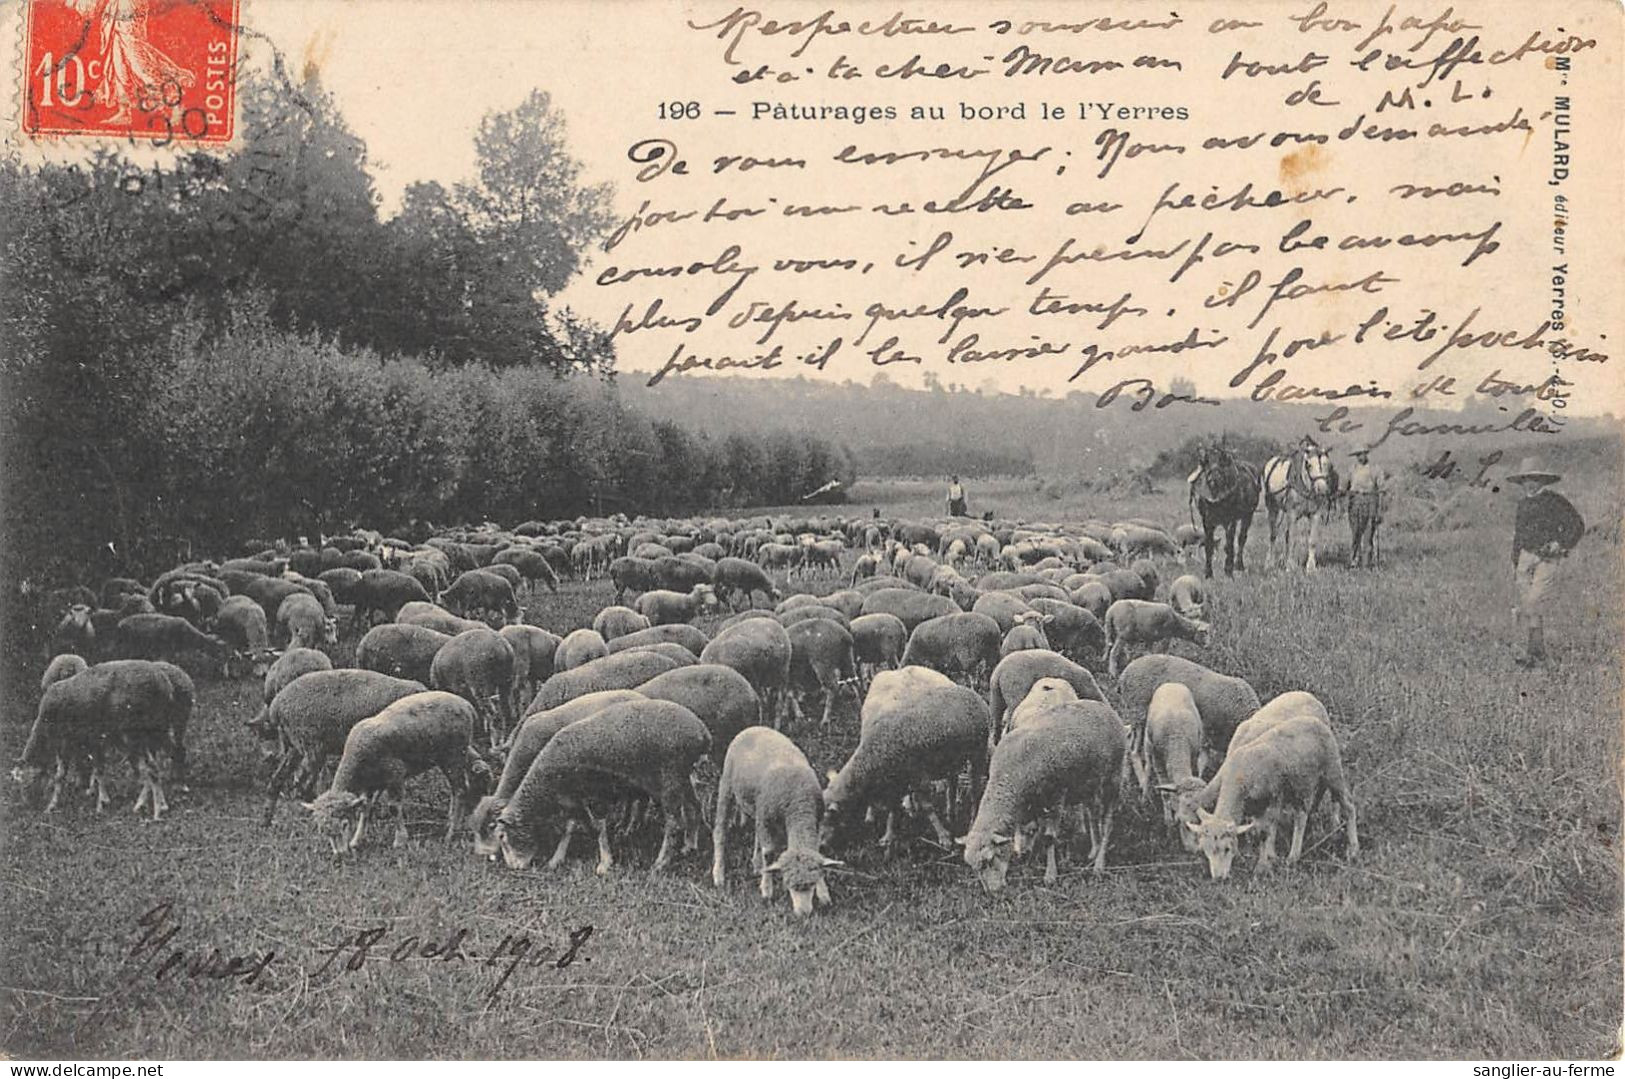 Respectueu souvenir au bon papa
et à ta chère Maman tout l'affection
de M. L.
10c
POSTES
196 — Pâturages au bord le l'Yerres
Mme MULARD, éditeur Yerres (S.-&-O.)
De vous ennuyer; Nous avons demandé
pour toi une recette au pêcheur, mais
consolez vous, il n'en prend pas beaucoup
plus depuis quelque temps, il faut
parait-il les laisser grandir pour l'été prochain
Bons baisers de toute
la famille
M. L.
Yerres 18 Oct. 1908.
sanglier-au-ferme